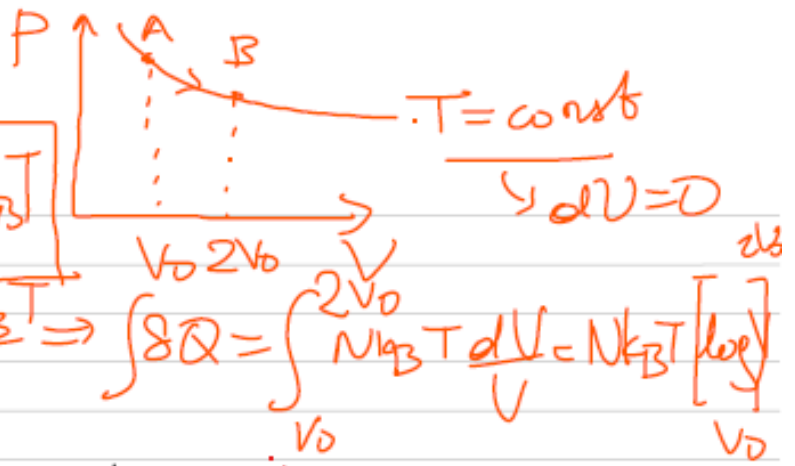 P A B
T = const
BT
↳ dU=0
V₀ 2V₀ V
T ⇒ ∫δQ = ∫_{V₀}^{2V₀} Nk_BT dV/V = Nk_BT [log V]_{V₀}^{2V₀}